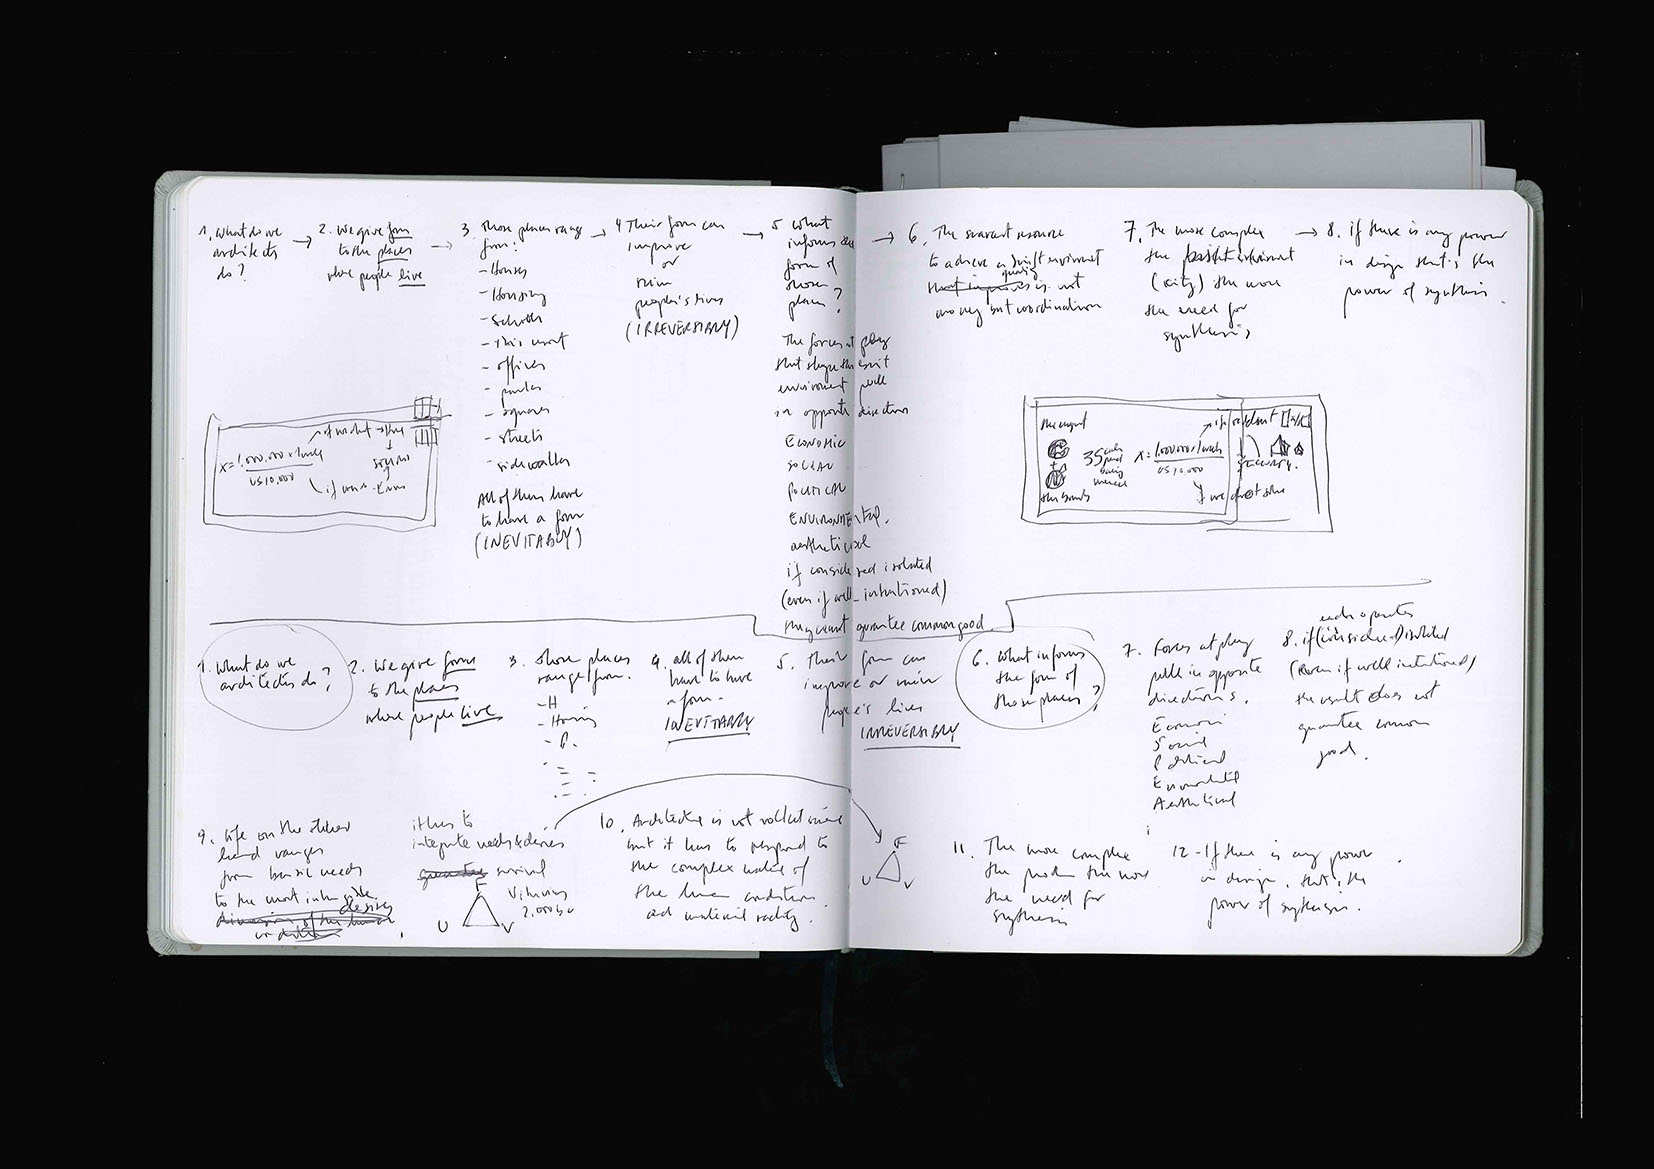 1. What do we
architects
do?
2. We give form
to the places
where people live
3. Those places range
from:
- Houses
- Housing
- Schools
- offices
- parks
- squares
- streets
- sidewalks
All of them have
to have a form
(INEVITABLY)
4 Their form can
improve
or
ruin
people's lives
(IRREVERSIBLY)
5 What
informs the
form of
those
places?
The forces at play
that shape the built
environment pull
in opposite direction
ECONOMIC
SOCIAL
POLITICAL
ENVIRONMENTAL.
aesthetical
if considered isolated
(even if well-intentioned)
they can't guarantee common good.
6. The scarcest resource
to achieve a built environment
quality
that improves is not
money but coordination
7. The more complex
the built environment
(city) the more
the need for
synthesis
8. if there is any power
in design that's the
power of synthesis.
X = 1.000.000 x lunch
US 10,000
35
X = 1.000.000 x lunch
US 10,000
1. What do we
architects do?
2. We give form
to the places
where people live
3. Those places
range from.
- H
- Housing
- P.
4. all of them
have to have
a form
INEVITABLY
5. Their form can
improve or ruin
people's lives
IRREVERSIBLY
6. What informs
the form of
those places?
7. Forces at play
pull in opposite
directions.
Economic
Social
Political
Environmental
Aesthetical
each operates
8. if (considered) isolated
(even if well intentioned)
the result does not
guarantee common
good.
9. Life on the other
hand ranges
from basic needs
to the most intangible
desires
dimensions of the human
condition
it has to
integrate needs & desires
guarantee survival
F
U V
Vitruvius
2.000 b c
10. Architecture is not rocket science
but it has to respond to
the complex nature of
the human condition
and material reality.
F
U V
11. The more complex
the problem the more
the need for
synthesis
12 - If there is any power
in design, that is the
power of synthesis.